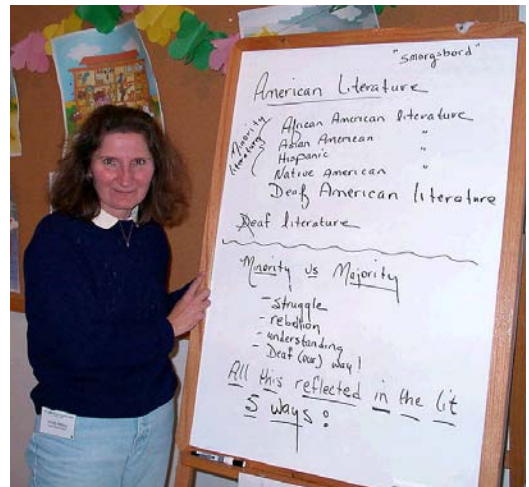 "smorgsbord"
American Literature
Minority literatures
African American literature
Asian American "
Hispanic "
Native American "
Deaf American literature
Deaf literature
Minority vs Majority
- struggle
- rebellion
- understanding
- Deaf (our) way!
All this reflected in the lit
5 ways: